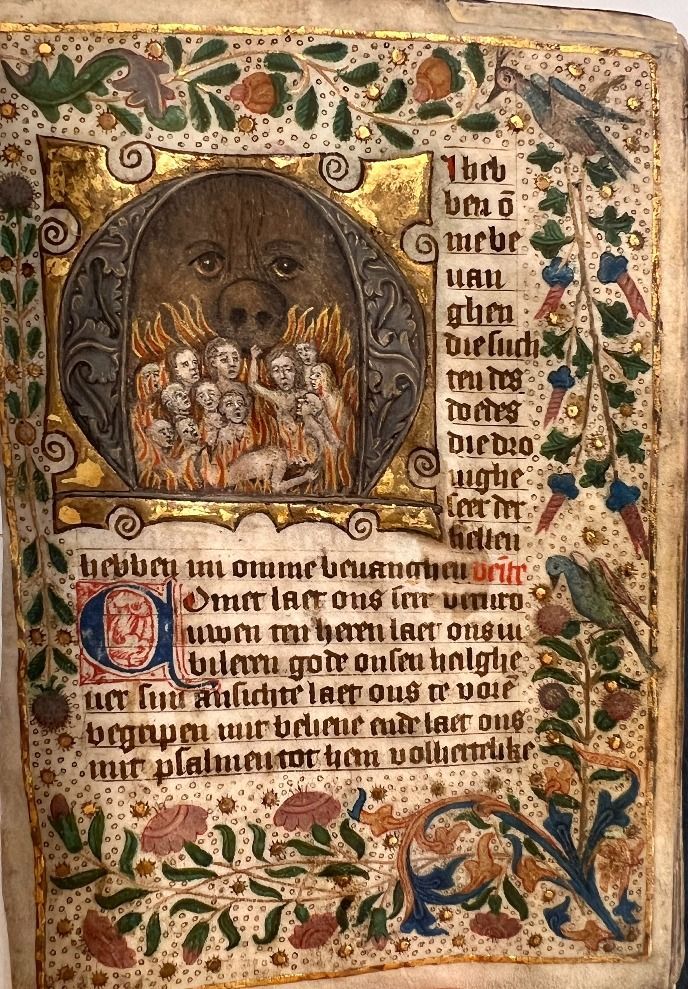 MI heb
ben o̅
mebe
uan
ghen
die such
ten des
doedes
die dro
uighe
seer der
hellen
hebben mi omme beuanghen venite
Comet laet ons seer veruro
uwen ten heren laet ons iu
bileren gode onsen heilghe
uer sijn ansichte laet ons te vore̅
begripen mit beliene ende laet ons
mit psalmen tot hem volhertelike